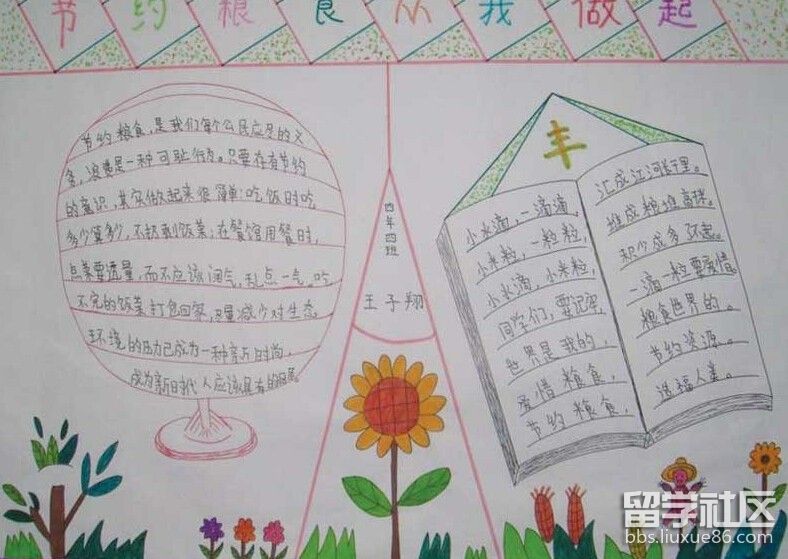 节约粮食从我做起
节约粮食,是我们每个公民应尽的义
务,浪费是一种可耻行为。只要存有节约
的意识,其实做起来很简单:吃饭时吃
多少算多少,不扔剩饭菜;在餐馆用餐时,
点菜要适量,而不应该阔气,乱点一气。吃
不完的饭菜打包回家,尽量减少对生态
环境的压力已成为一种方式时尚,
成为新时代人应该具有的
四年四班
王子翔
丰
小水滴,一滴滴,
小米粒,一粒粒,
小水滴,小米粒,
同学们,要记牢,
世界是我的,
爱惜粮食,
节约粮食,
汇成江河千里。
堆成粮堆高
积少成多不起。
一滴一粒要爱惜。
粮食世界的。
节约资源。
造福人类。
留学社区
bbs.liuxue86.com